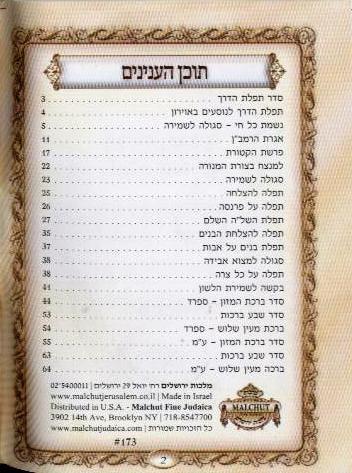 תוכן הענינים
סדר תפלת הדרך 3
תפלת הדרך לנוסעים באוירון 4
נשמת כל חי - סגולה לשמירה 5
אגרת הרמב"ן 11
פרשת הקטורת 17
למנצח בצורת המנורה 22
סגולה לשמירה 23
תפלה להצלחה 25
תפלה על פרנסה 26
תפלת השל"ה השלם 27
תפלה להצלחת הבנים 35
תפלת בנים על אבות 37
סגולה למצוא אבידה 38
תפלה על כל צרה 38
בקשה לשמירת הלשון 41
סדר ברכת המזון - ספרד 44
סדר שבע ברכות 53
ברכת מעין שלוש - ספרד 54
סדר ברכת המזון - ע"מ 55
סדר שבע ברכות 63
ברכה מעין שלוש - ע"מ 64
מלכות ירושלים רח' יואל 29 ירושלים | 02-5400011
www.malchutjerusalem.co.il | Made in Israel
Distributed in U.S.A. - Malchut Fine Judaica
3902 14th Ave, Brooklyn NY | 718-8547700
www.malchutjudaica.com | כל הזכויות שמורות
MALCHUT
#173
2